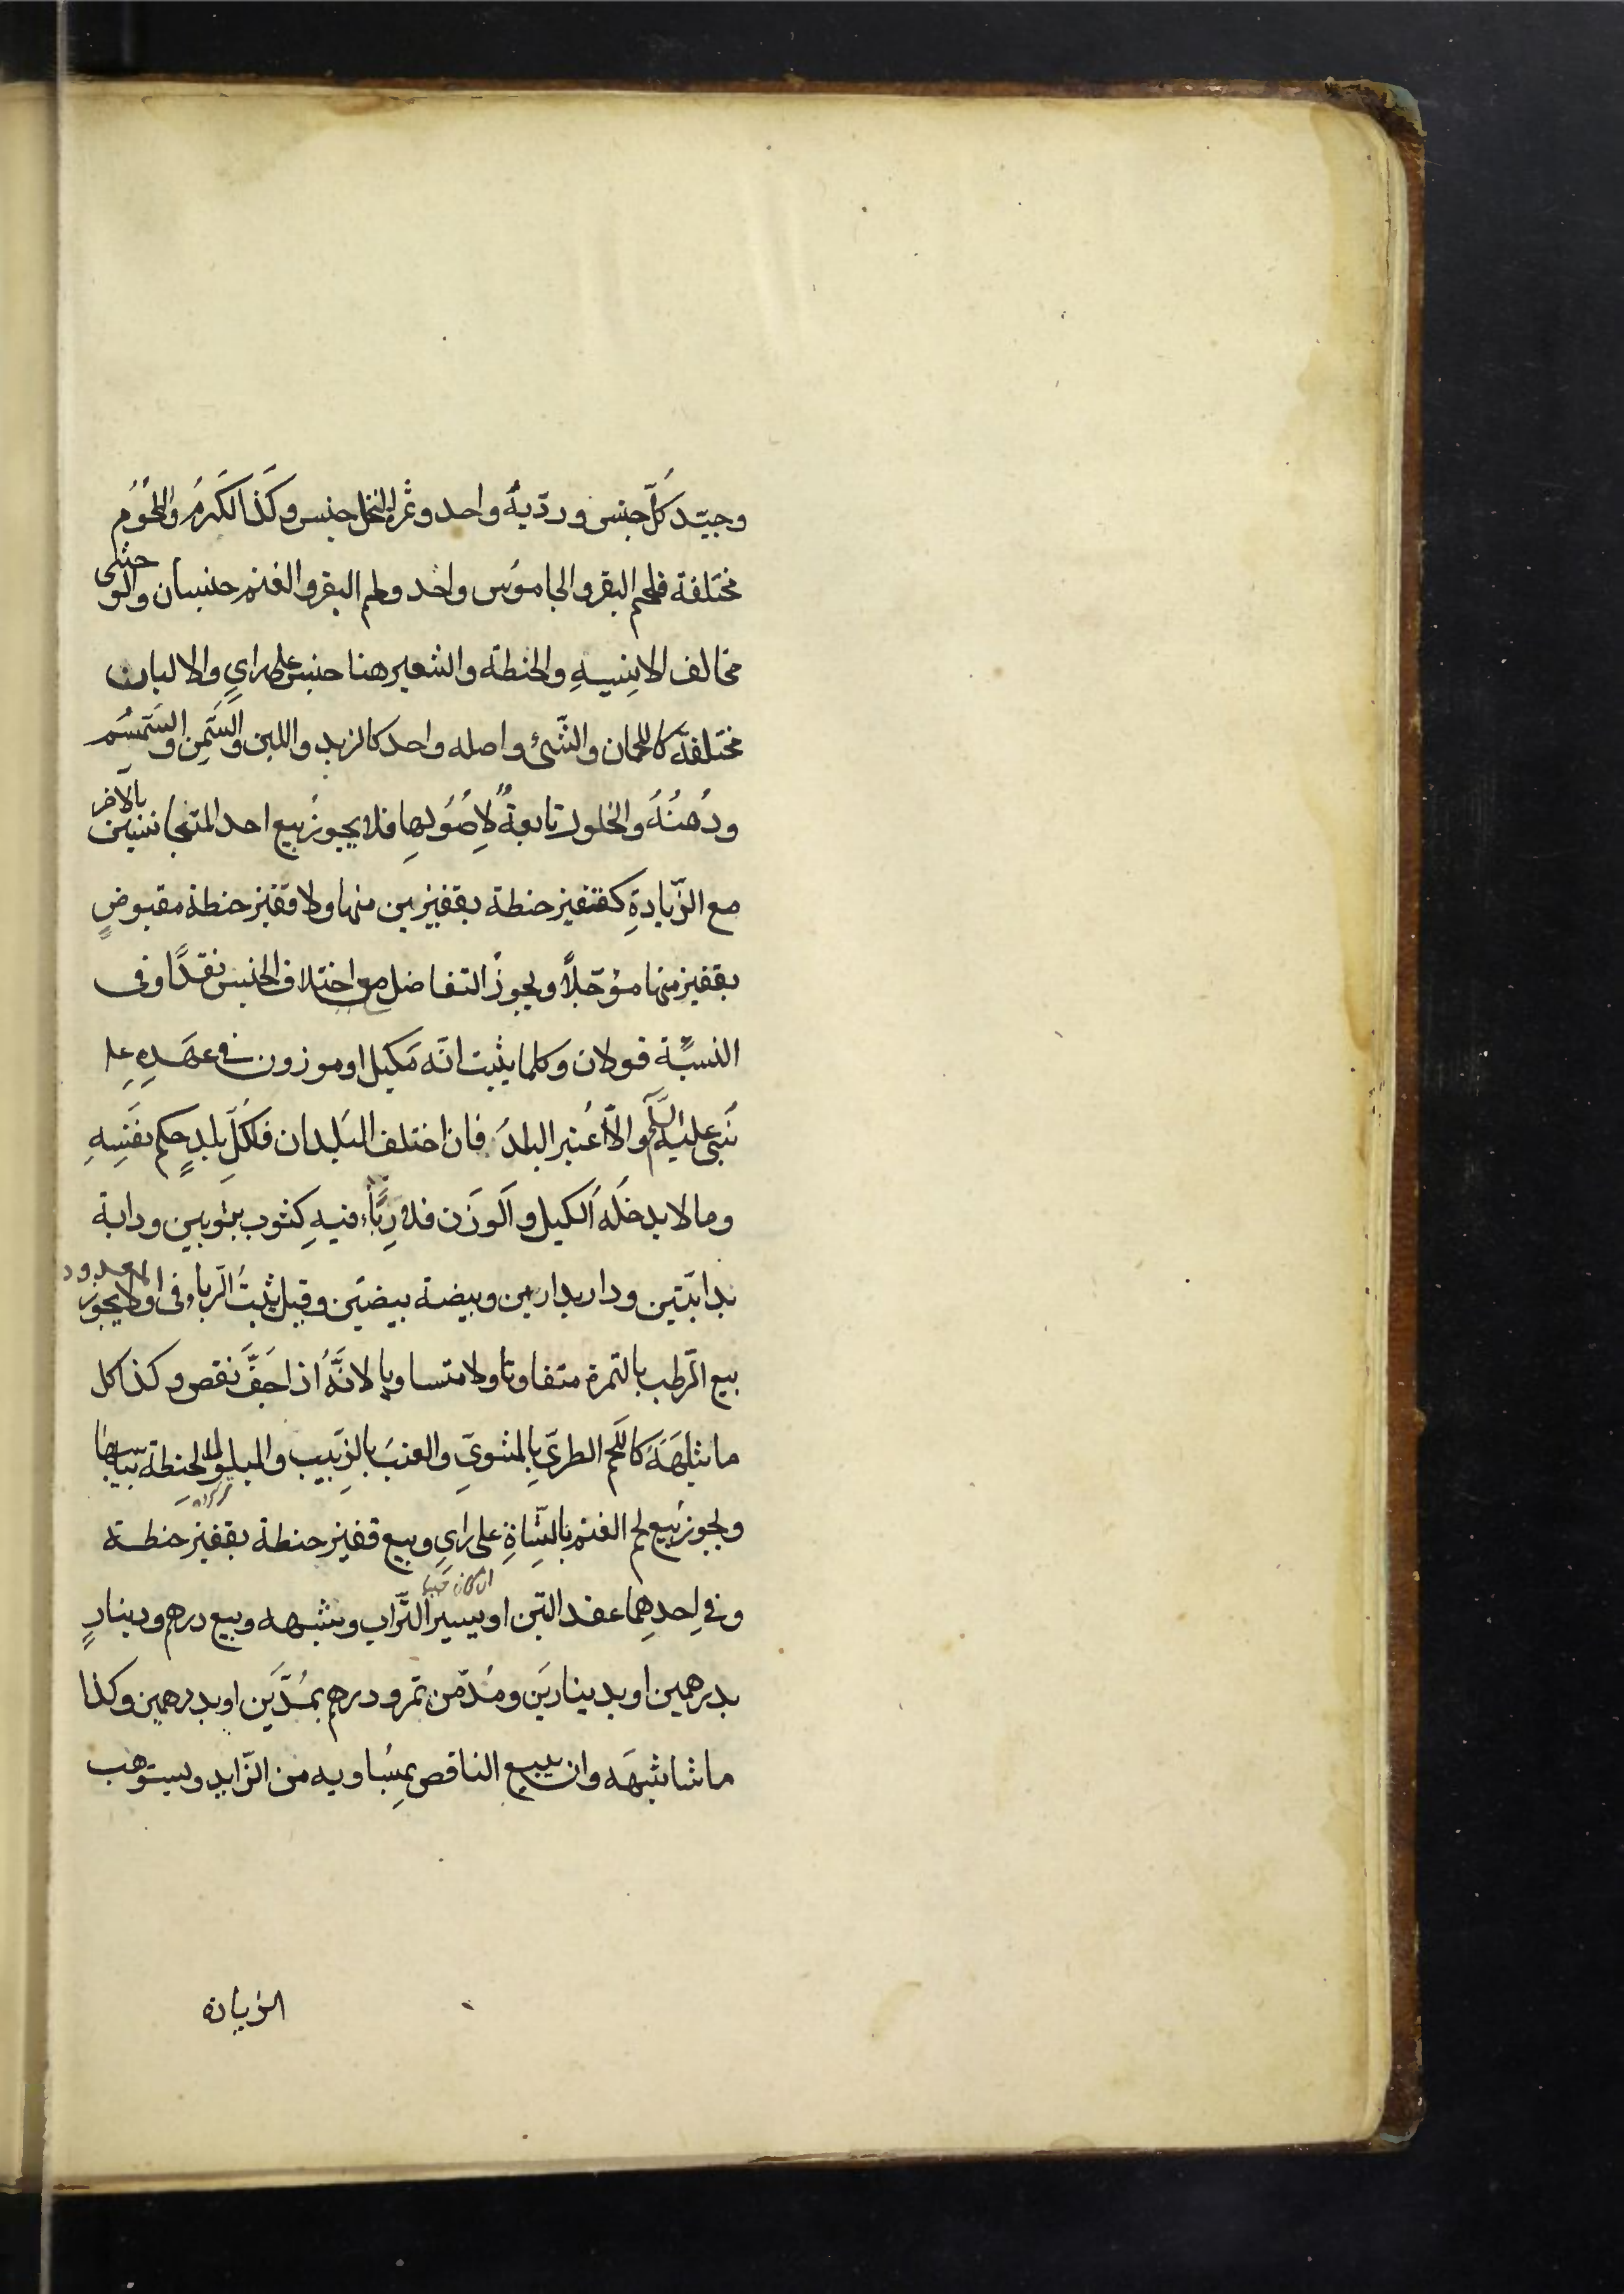 وجيّد كلّ جنس وردّيه واحد وثمرة النخل جنس وكذا الكرمُ واللّحُوُم
مختلفة فلحم البقر والجاموُس واحد ولحم البقر والغنم جنسان والوحشى
مخالف الانِسيهِ والحنطة والشعير هنا جنس على راىٍ والالبان
مختلفة كاللحمان والشّىُ واصله واحد كالزبد واللبن والسّمن والسّمسُم
ودُهنُهُ والخلول تابعةٌ لاِصُوُلهاِ فلا يجوزُ بيع احد المتجانسين بالاخر
مع الزّيادةِ كقفيز حنطة بقفيزين منها ولا قفيز حنطة مقبوضٍ
بقفيز منها مؤجّلاً ويجوزُ التفاضل مع اختلاف الجنس نقدًا وفى
النسيّة قولان وكلما يثبت انّه مكيل او موزون فى عهدِهِ علِ
نبى عليه السّلم والاّ اُعتبر البلدُ فان اختلف البلدان فلكلّ بلدٍ حكم نفسِهِ
وما لا يدخلَه الكيل والوَزَن فلا رِبًاء فيهِ كثوب بثوبين ودابة
بدابّتين ودار بدارين وبيضة ببيضتَين وقيل يثبتُ الرّباء فى المعدود ولا يجوز
بيع الرّطب بالتمرة متفاوتا ولا متساويا لانّهُ اذا جَفَّ نقص وكذا كل
ماشابهَهَ كاللّحم الطرىّ بِالمشوىّ والعنبَ بالزبّيب والمبلولة الحنِطة بيابسها
ويجوز بَيع لحم الغنم بالشّاةِ على راىِ وبيع قفيز حنطة بقفيز حنطة
وفى احدِهِما عقد التّبن او يسير التّراب وشبهه وبيع درهم ودينارٍ
ان كان
بدرهمين او بدينارين ومُدّ من تمر ودرهم بمُدّين او بدرهمين وكذا
ماشابهَه وان يبيع الناقص بمِسُاويه من الزّايد ويستوهب
الزيادة